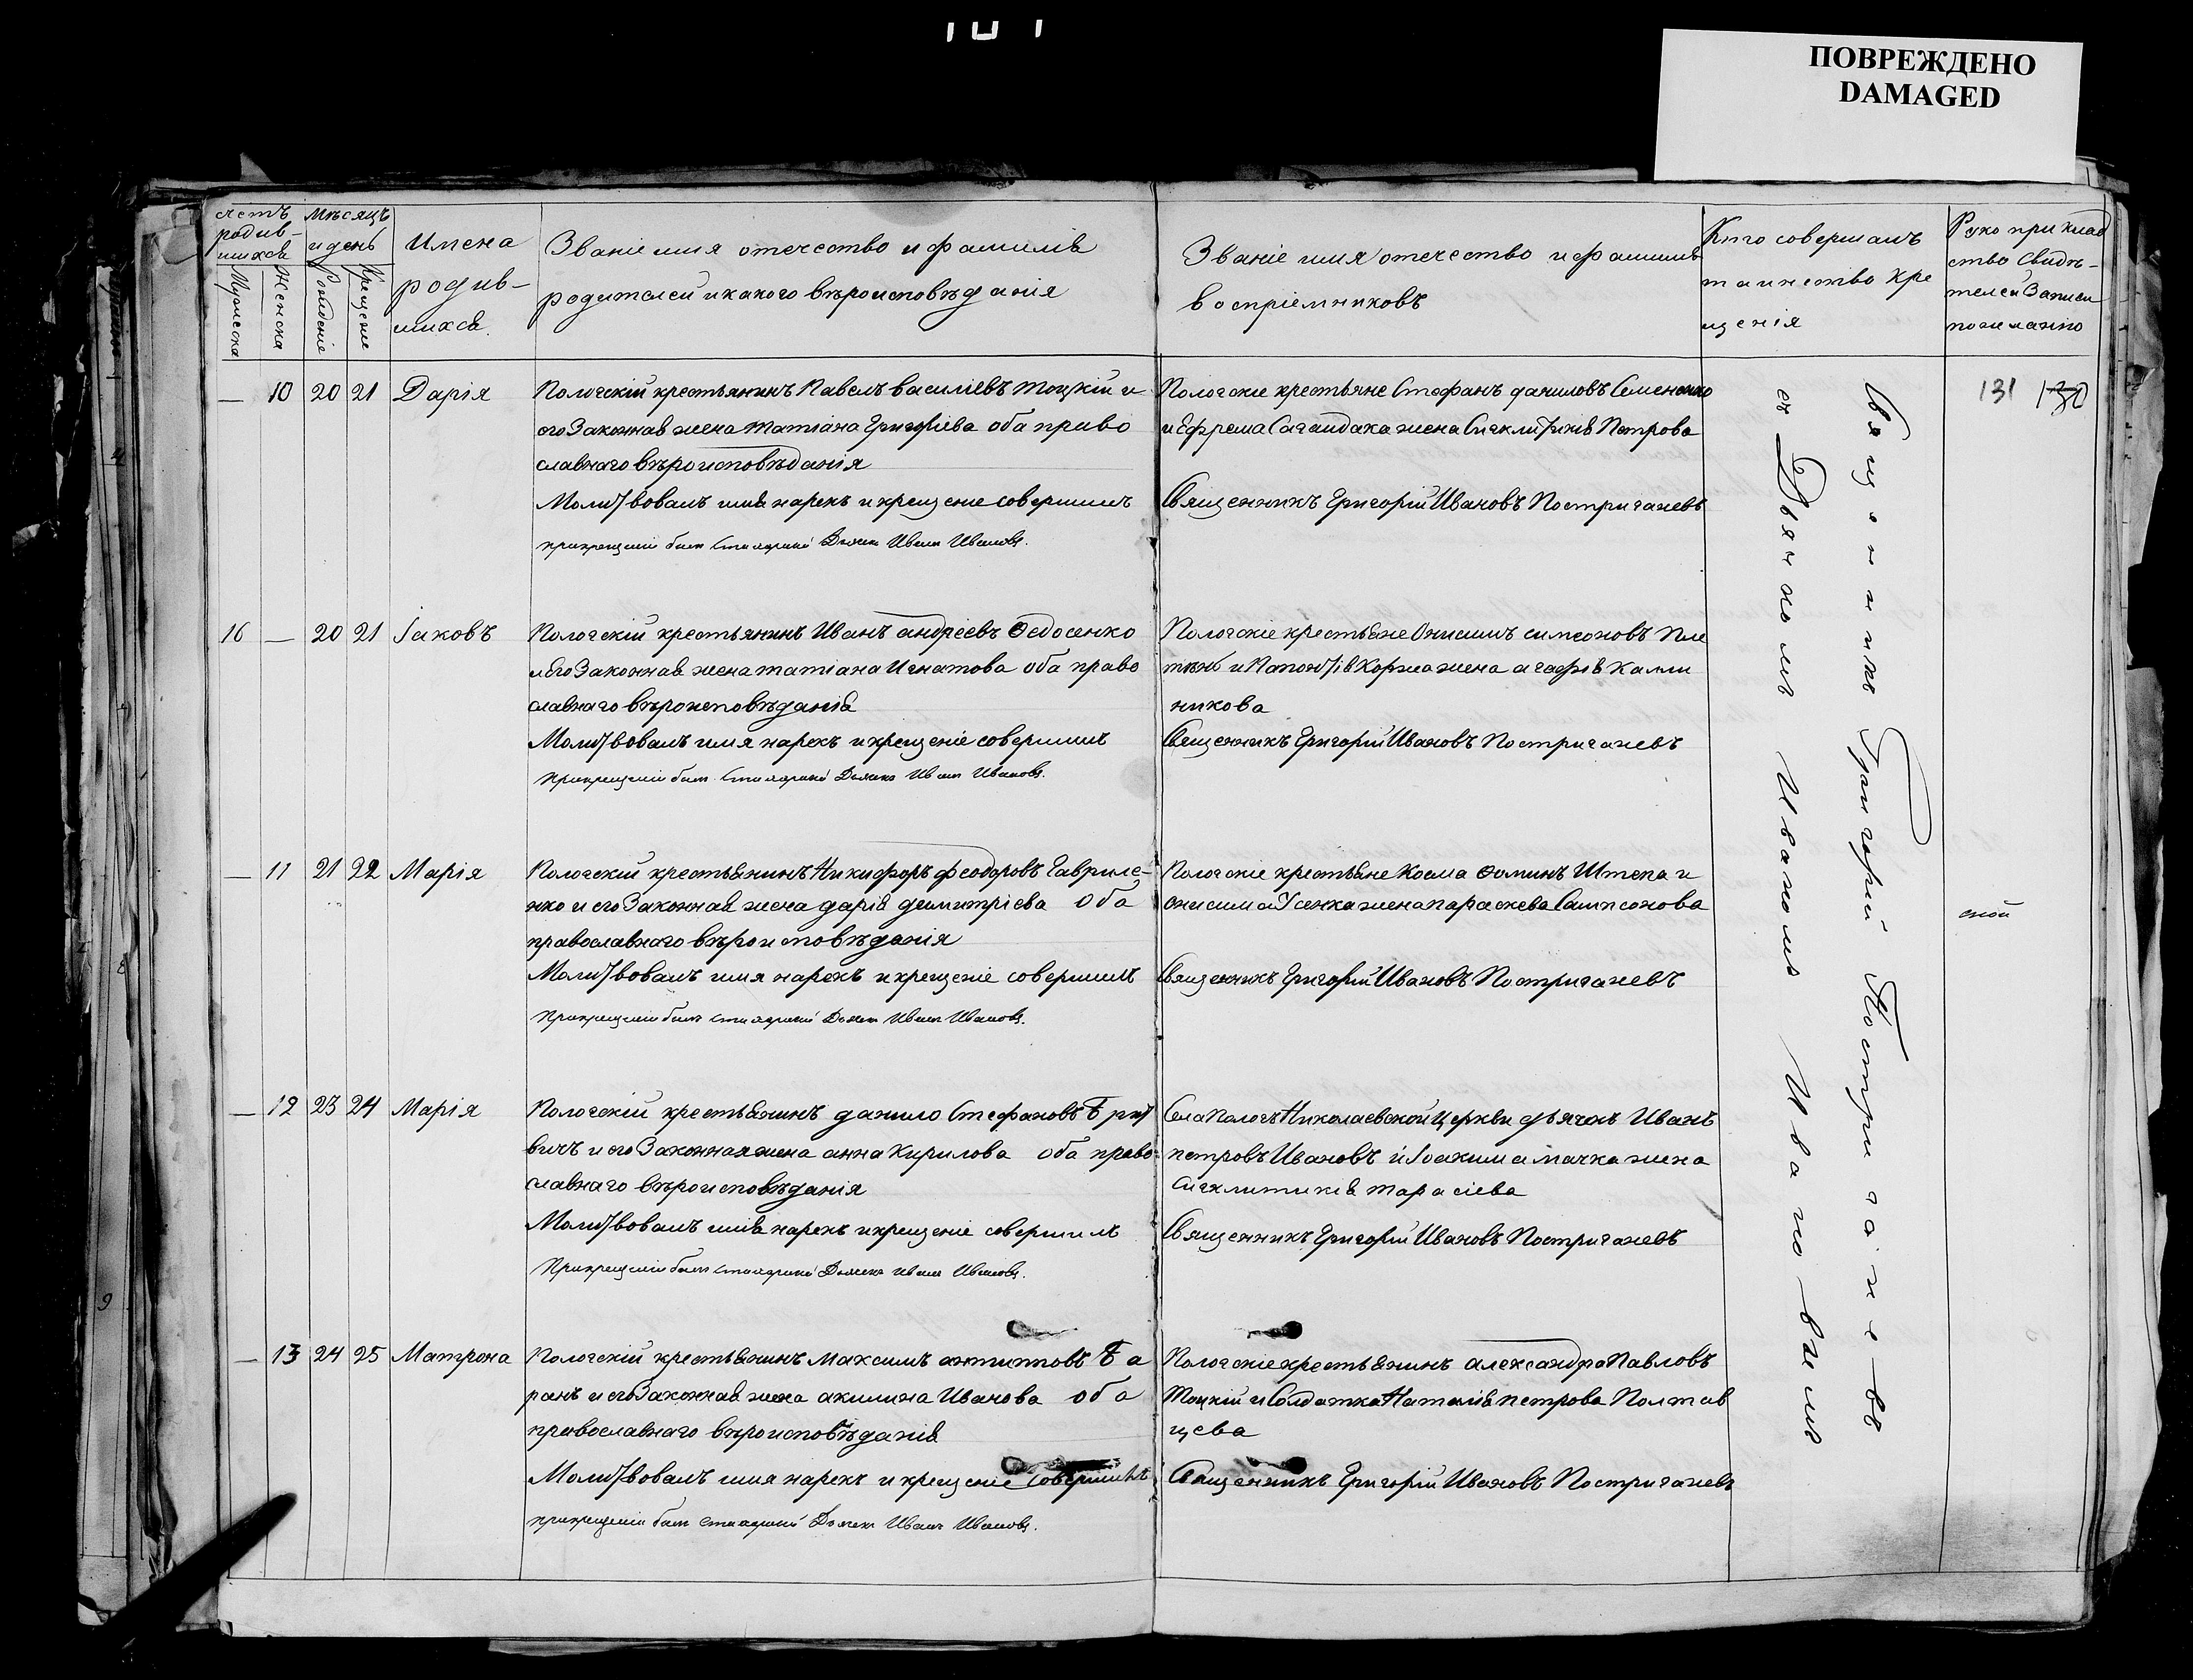 ПОВРЕЖДЕНО
DAMAGED
счетъ родив-шихся
Мужеска
Женска
мѣсяцъ и день
Рожденіе
Крещеніе
Имена родив-шихся.
Званіе имя отечество и фамилія
родителей и какого вѣроисповѣданія
Званіе имя отечество и фамилія
воспріемниковъ
Кто совершалъ
таинство кре
щенія
Рукоприклад
ство Свидѣ-
телей Записи
по желанію
131 130
— 10 20 21 Дарія
Пологскій крестьянинъ Павелъ василіевъ тоцкій и
его Законная жена татіана Григоріева оба право
славнаго вѣроисповѣданія
Молитвовалъ имя нарекъ и крещеніе совершилъ
при крещеніи былъ Дьячекъ Иванъ Ивановъ.
Пологскіе крестьяне Стефанъ даниловъ Семененко
и Ефрема Сагайдака жена Сигклитикія Петрова
Священникъ Григорій Ивановъ Постригачевъ
16 — 20 21 Іаковъ
Пологскій крестьянинъ Иванъ андреевъ Ѳедосенко
и его Законная жена татіана Игнатова оба право
славнаго вѣроисповѣданія
Молитвовалъ имя нарекъ и крещеніе совершилъ
при крещеніи былъ Дьячекъ Иванъ Ивановъ.
Пологскіе крестьяне Онисимъ симеоновъ
и Коржа жена агафія Калли
никова
Священникъ Григорій Ивановъ Постригачевъ
— 11 21 22 Марія
Пологскій крестьянинъ Никифоръ феодоровъ Гавриле-
нко и его Законная жена дарія димитріева оба
православнаго вѣроисповѣданія
Молитвовалъ имя нарекъ и крещеніе совершилъ
При крещеніи былъ Дьячекъ Иванъ Ивановъ.
Пологскіе крестьяне Косма Ѳоминъ Штепа и
онисима Усенка жена параскева Сампсонова
Священникъ Григорій Ивановъ Постригачевъ
ской
— 12 23 24 Марія
Пологскій крестьянинъ данило Стефановъ
вичъ и его Законная жена анна Кирилова оба право-
славнаго вѣроисповѣданія
Молитвовалъ имя нарекъ и крещеніе совершилъ
При крещеніи былъ Дьячекъ Иванъ Ивановъ.
Села Пологъ Николаевской Церкви дьячокъ Иванъ
петровъ Ивановъ и Іоакима мачка жена
Сигклитикія тарасіева
Священникъ Григорій Ивановъ Постригачевъ
— 13 24 25 Матрона
Пологскій крестьянинъ Максимъ антиповъ Ба
ранъ и его Законная жена акилина Иванова оба
православнаго вѣроисповѣданія
Молитвовалъ имя нарекъ и крещеніе совершилъ
при крещеніи былъ Дьячекъ Иванъ Ивановъ.
Пологскіе крестьянинъ александръ Павловъ
Тоцкій и Солдатка Наталія петрова Полтав
цева
Священникъ Григорій Ивановъ Постригачевъ
Священникъ Григорій Постригачевъ
съ Дьячкомъ Иваномъ Ивановымъ